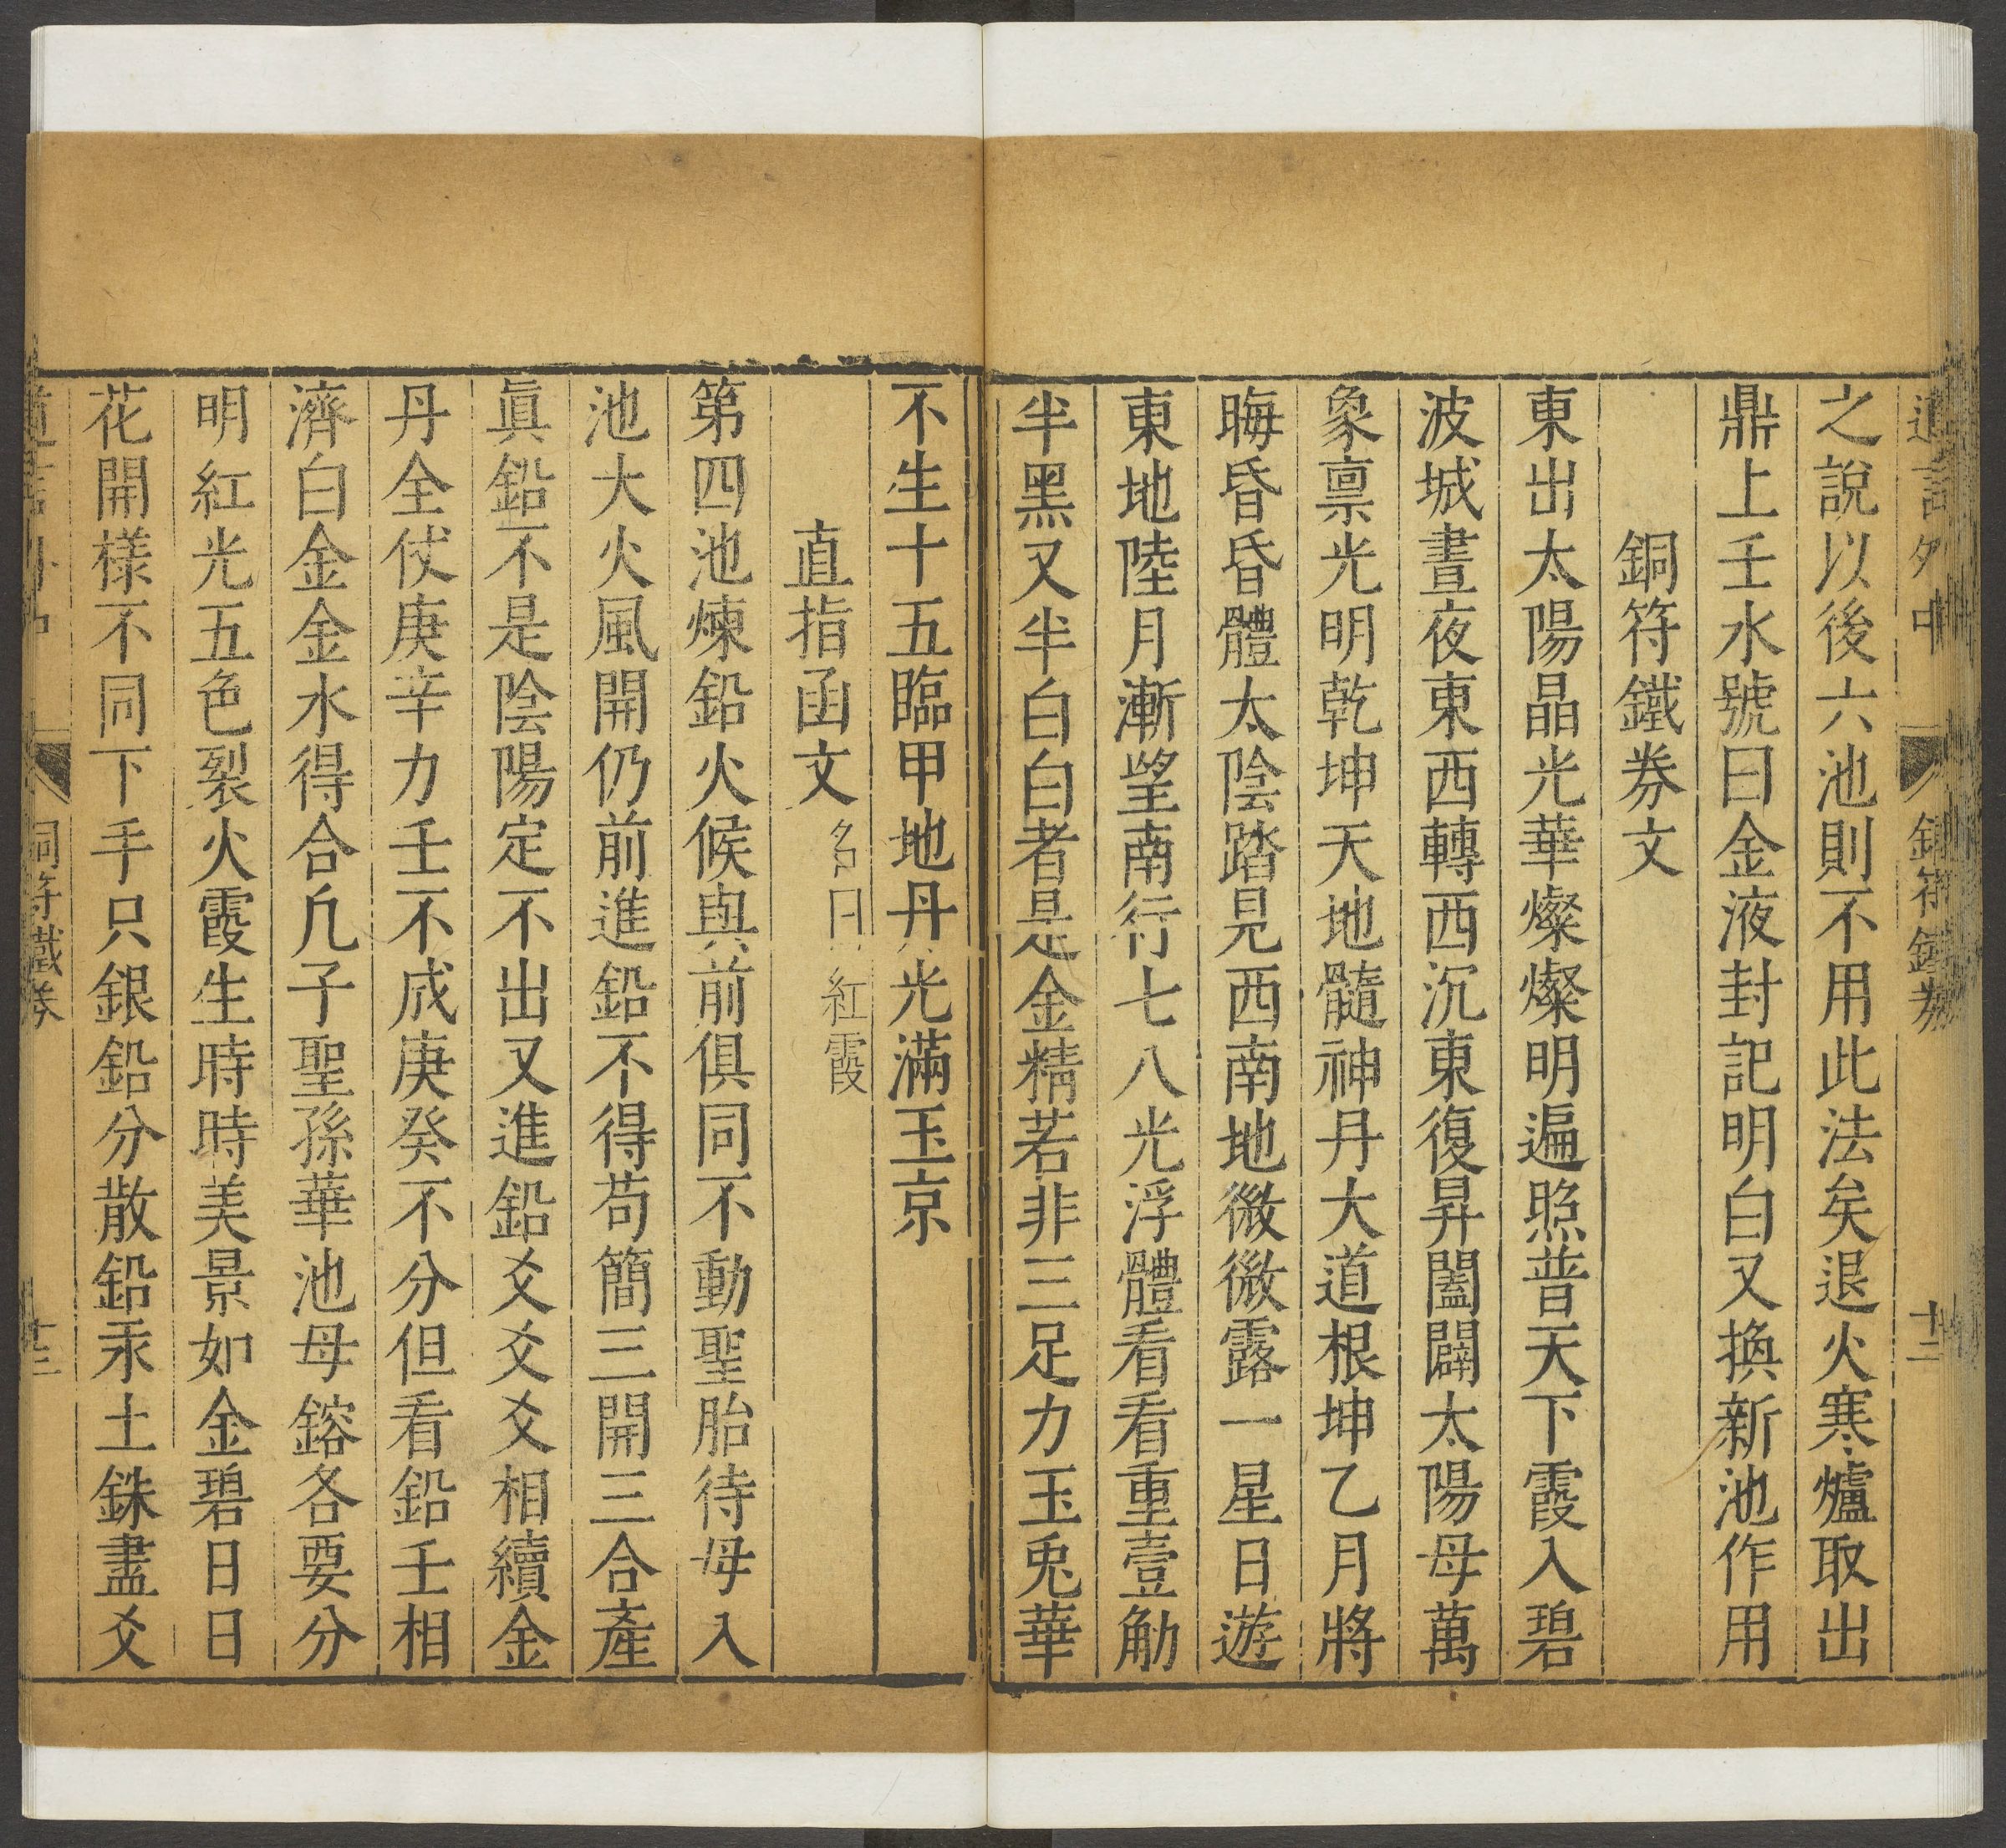 之說以後六池則不用此法矣退火寒爐取出
鼎上壬水號曰金液封記明白又換新池作用
銅符鐵券文
東出太陽晶光華燦燦明遍照普天下霞入碧
波城晝夜東西轉西沉東復昇闔闢太陽母萬
象禀光明乾坤天地髓神丹大道根坤乙月將
晦昏昏體太陰踏見西南地微微露一星日遊
東地陸月漸望南行七八光浮體看看重壹觔
半黑又半白白者是金精若非三足力玉兎華
不生十五臨甲地丹光滿玉京
直指函文 名曰紅霞
第四池煉鉛火候與前俱同不動聖胎待母入
池大火風開仍前進鉛不得苟簡三開三合產
眞鉛不是陰陽定不出又進鉛爻爻爻相續金
丹全仗庚辛力壬不成庚癸不分但看鉛壬相
濟白金金水得合凢子聖孫華池母鎔各要分
明紅光五色裂火霞生時時美景如金碧日日
花開樣不同下手只銀鉛分散鉛汞土銖盡爻